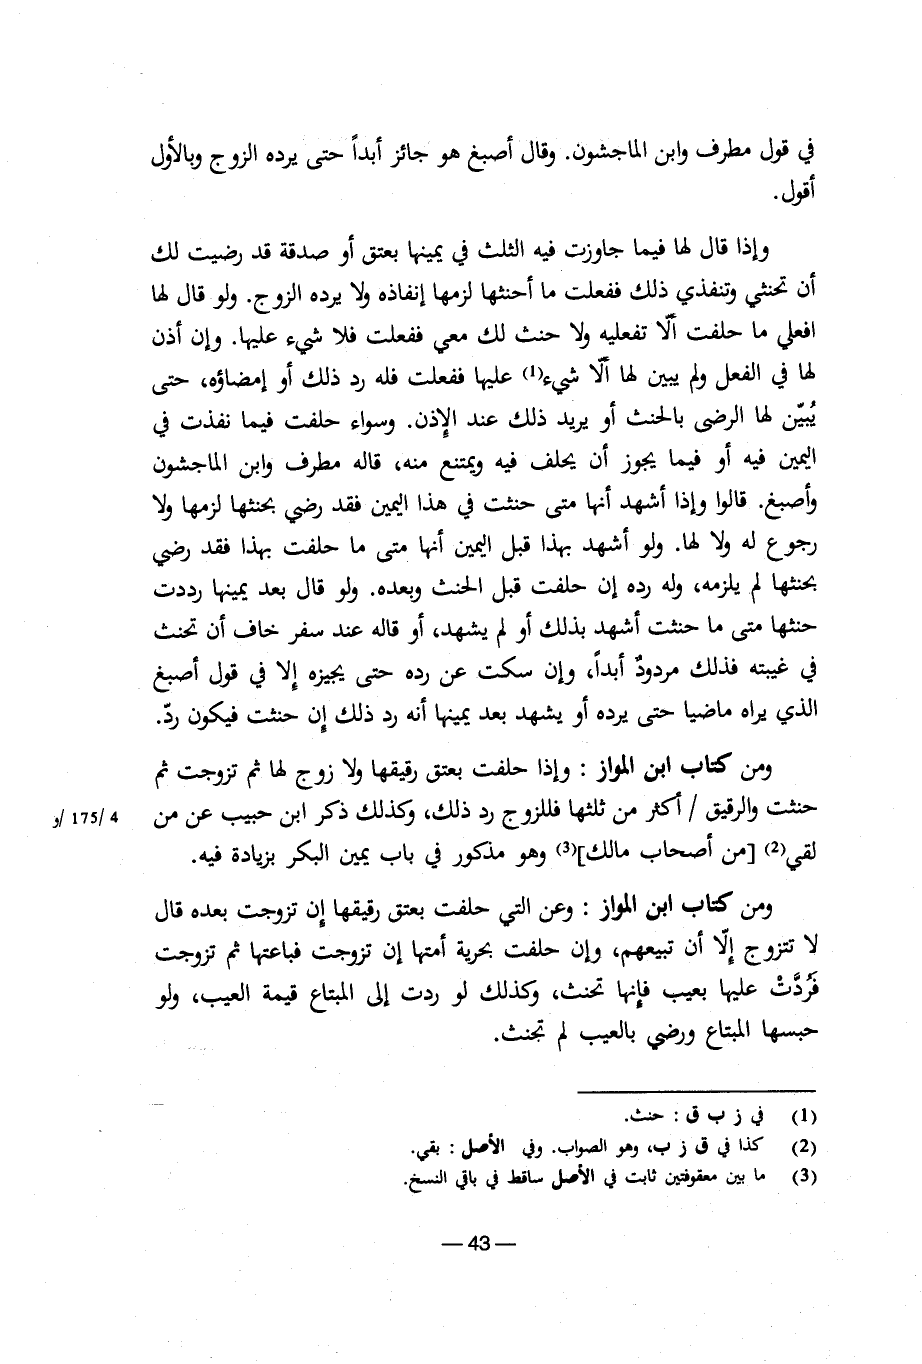 في قول مطرف وابن الماجشون. وقال أصبغ هو جائز أبداً حتى يرده الزوج وبالأول
أقول.
وإذا قال لها فيما جاوزت فيه الثلث في يمينها بعتق أو صدقة قد رضيت لك
أن تحنثي وتنفذي ذلك ففعلت ما أحنثها لزمها إنفاذه ولا يرده الزوج. ولو قال لها
افعلي ما حلفت ألّا تفعليه ولا حنث لك معي ففعلت فلا شيء عليها. وإن أذن
لها في الفعل ولم يبين لها ألّا شيء(1) عليها ففعلت فله رد ذلك أو إمضاؤه، حتى
يُبيّن لها الرضى بالحنث أو يريد ذلك عند الإذن. وسواء حلفت فيما نفذت في
اليمين فيه أو فيما يجوز أن يحلف فيه ويمتنع منه، قاله مطرف وابن الماجشون
وأصبغ. قالوا وإذا أشهد أنها متى حنثت في هذا اليمين فقد رضي بحنثها لزمها ولا
رجوع له ولا لها. ولو أشهد بهذا قبل اليمين أنها متى ما حلفت بهذا فقد رضي
بحنثها لم يلزمه، وله رده إن حلفت قبل الحنث وبعده. ولو قال بعد يمينها رددت
حنثها متى ما حنثت أشهد بذلك أو لم يشهد، أو قاله عند سفر خاف أن تحنث
في غيبته فذلك مردودٌ أبداً، وإن سكت عن رده حتى يجيزه إلا في قول أصبغ
الذي يراه ماضيا حتى يرده أو يشهد بعد يمينها أنه رد ذلك إن حنثت فيكون ردّ.
ومن كتاب ابن المواز : وإذا حلفت بعتق رقيقها ولا زوج لها ثم تزوجت ثم
حنثت والرقيق / أكثر من ثلثها فللزوج رد ذلك، وكذلك ذكر ابن حبيب عن من
4 /175/ و
لقي(2) [من أصحاب مالك](3) وهو مذكور في باب يمين البكر بزيادة فيه.
ومن كتاب ابن المواز : وعن التي حلفت بعتق رقيقها إن تزوجت بعده قال
لا تتزوج إلّا أن تبيعهم، وإن حلفت بحرية أمتها إن تزوجت فباعتها ثم تزوجت
فَرُدَّتْ عليها بعيب فإنها تحنث، وكذلك لو ردت إلى المبتاع قيمة العيب، ولو
حبسها المبتاع ورضي بالعيب لم تحنث.
(1) في ز ب ق : حنث.
(2) كذا في ق ز ب، وهو الصواب. وفي الأصل : بقي.
(3) ما بين معقوفتين ثابت في الأصل ساقط في باقي النسخ.
— 43 —